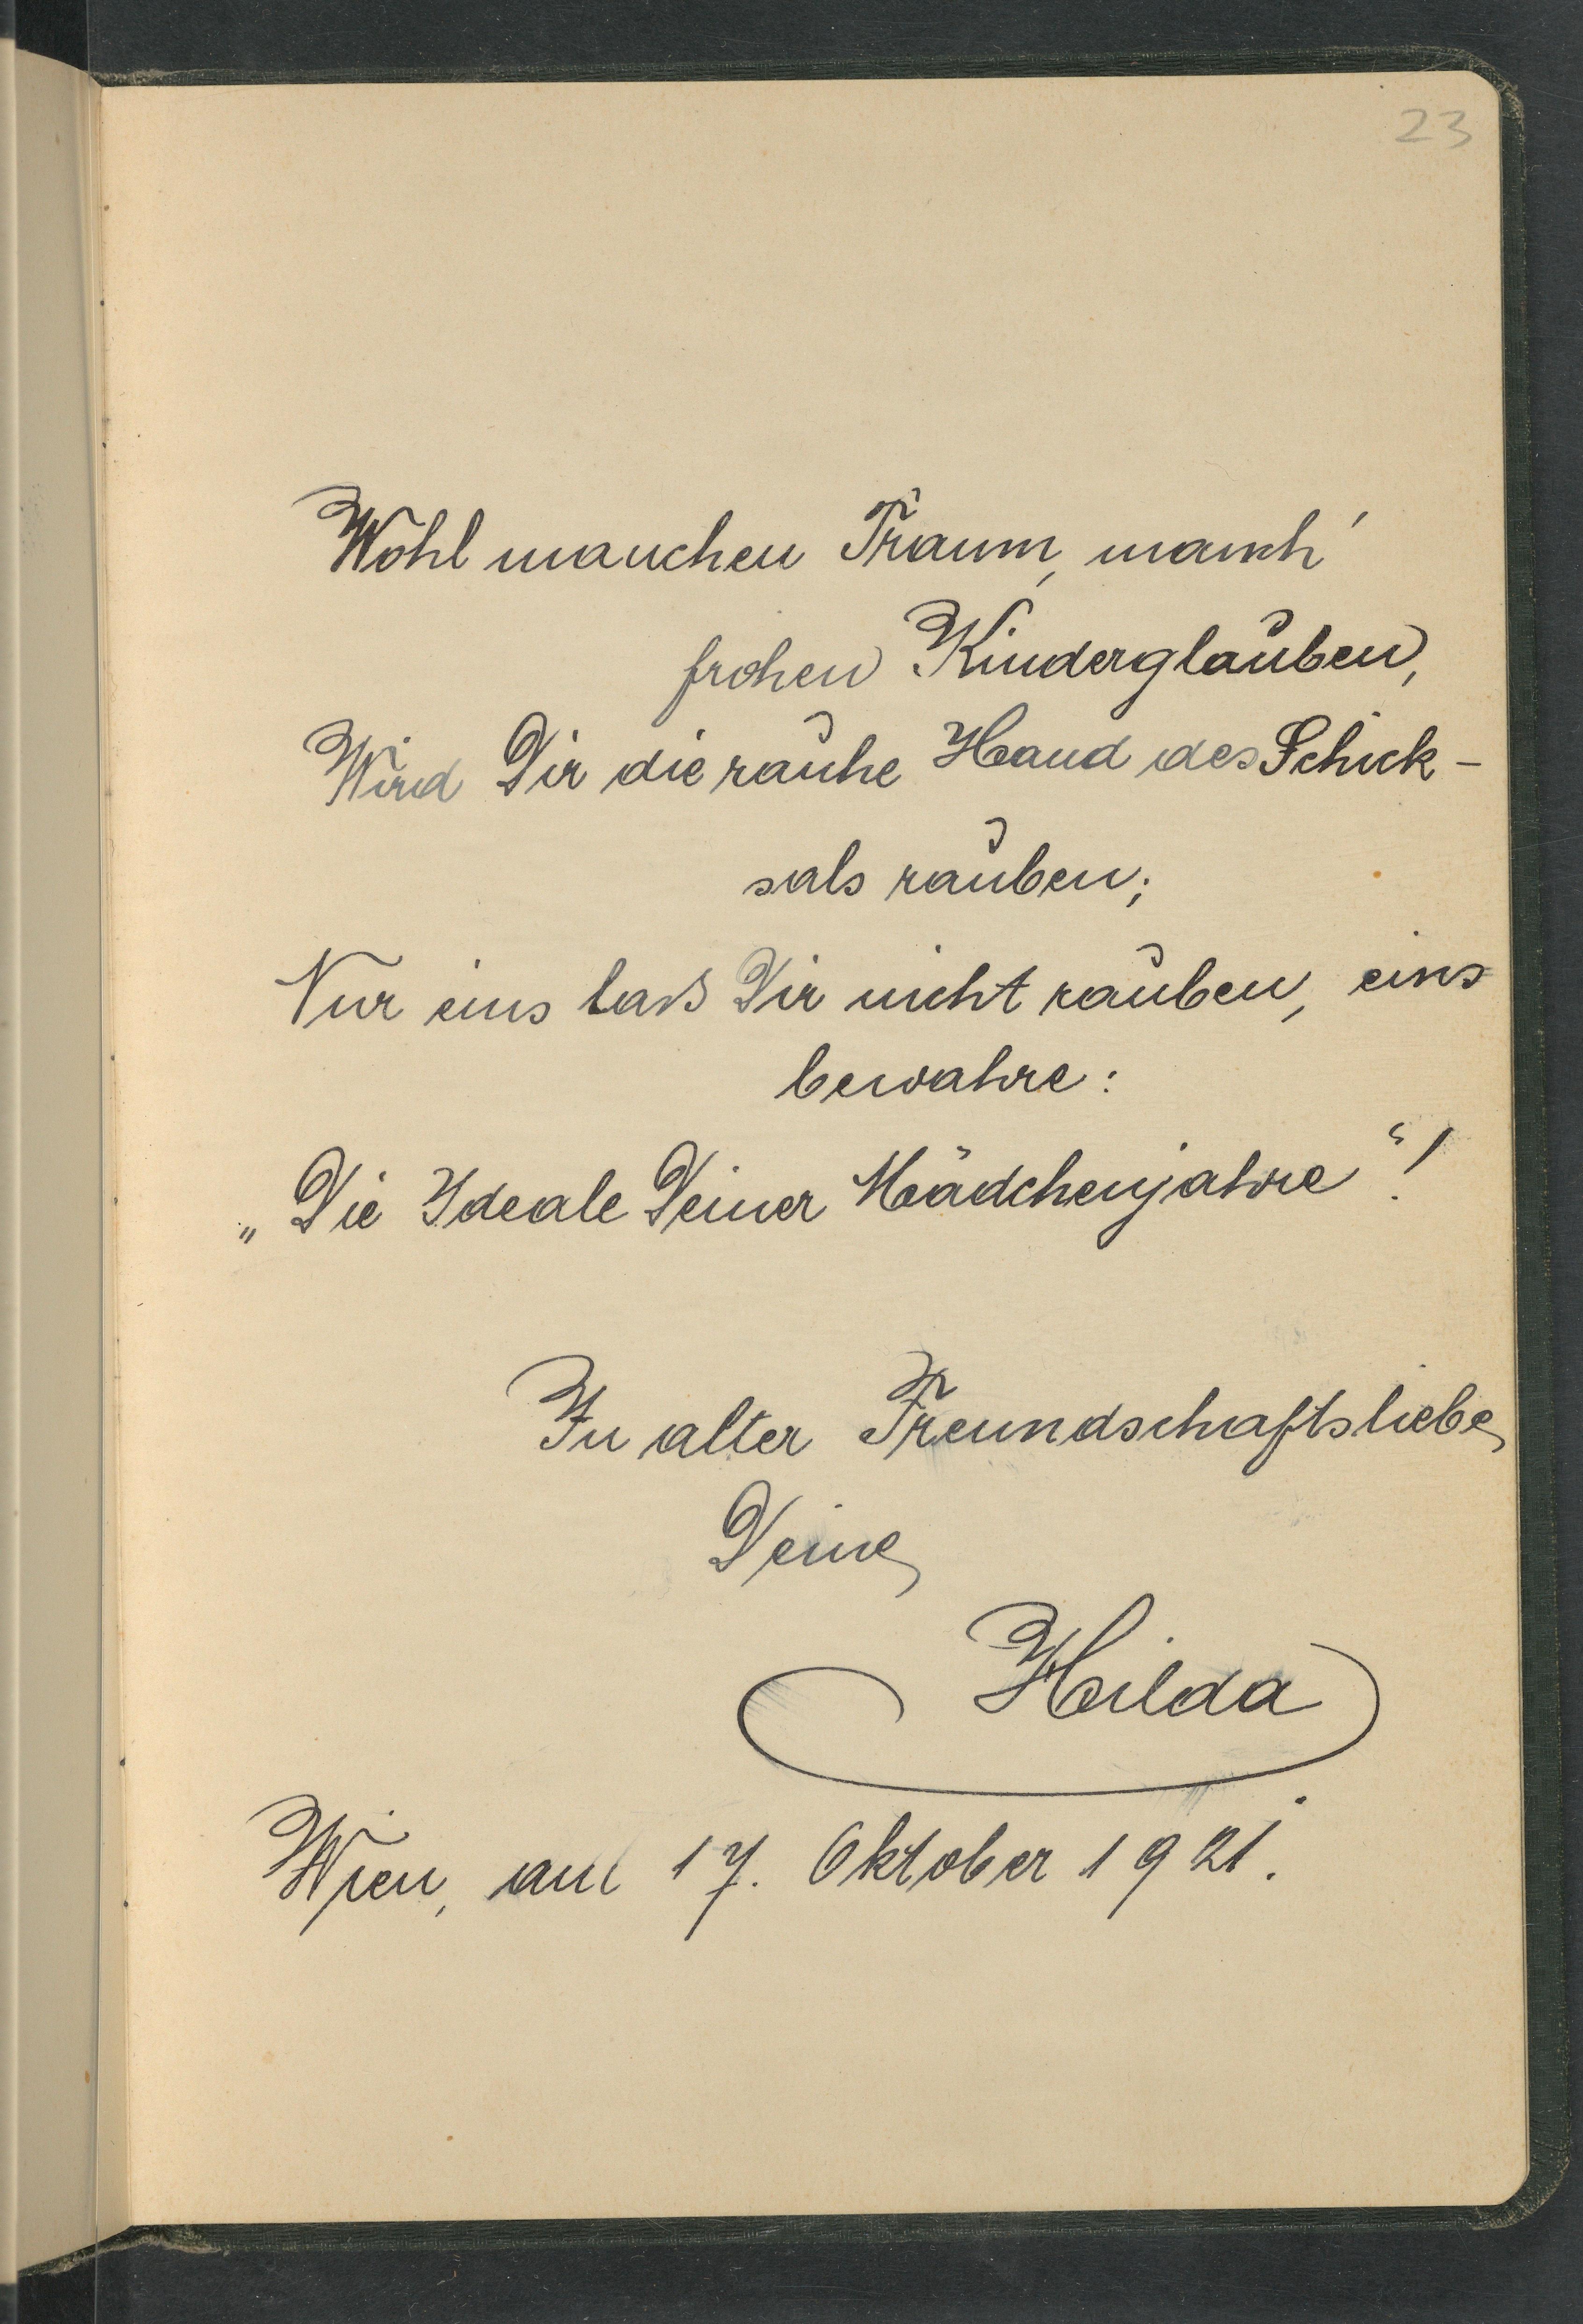 23
Wohl manchen Traum, manch'
frohen Kinderglauben,
Wird Dir die rauhe Hand des Schick-
sals rauben;
Nur eins laß Dir nicht rauben, eins
bewahre:
„Die Ideale Deiner Mädchenjahre“!
In alter Freundschaftsliebe
Deine
Hilda
Wien, am 17. Oktober 1921.